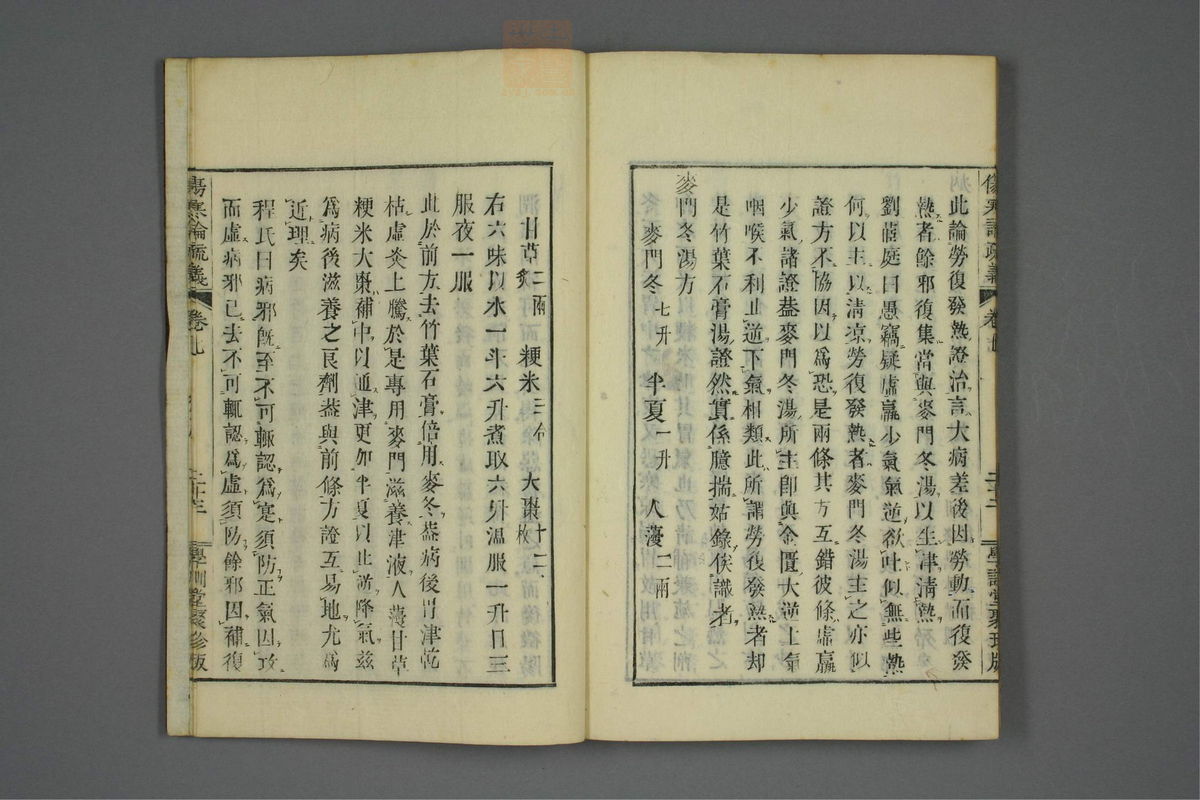 此論勞復發熱證治言大病差後因勞動而復發
熱者餘邪復集當與麥門冬湯以生津清熱
劉茝庭曰愚竊疑虛羸少氣氣逆欲吐似無些熱
何以主以清凉勞復發熱者麥門冬湯主之亦似
證方不協因以爲恐是兩條其方互錯彼條虛羸
少氣諸證葢麥門冬湯所主卽與金匱大逆上氣
咽喉不利止逆下氣相類此所謂勞復發熱者却
是竹葉石膏湯證然實係臆揣姑錄俟識者
麥門冬湯方
麥門冬七升 半夏一升 人薓二兩
傷寒論疏義 卷七 學訓堂聚珍版
甘草二兩炙 粳米三合 大棗十二枚
右六味以水一斗六升煮取六升温服一升日三
服夜一服
此於前方去竹葉石膏倍用麥冬葢病後胃津乾
枯虛炎上騰於是專用麥門滋養津液人薓甘草
粳米大棗補中以通津更加半夏以止逆降氣茲
爲病後滋養之良劑葢與前條方證互易地尤爲
近理矣
程氏曰病邪旣至不可輒認爲寔須防正氣因攻
而虛病邪已去不可輒認爲虛須防餘邪因補復
傷寒論疏義 卷七 學訓堂聚珍版